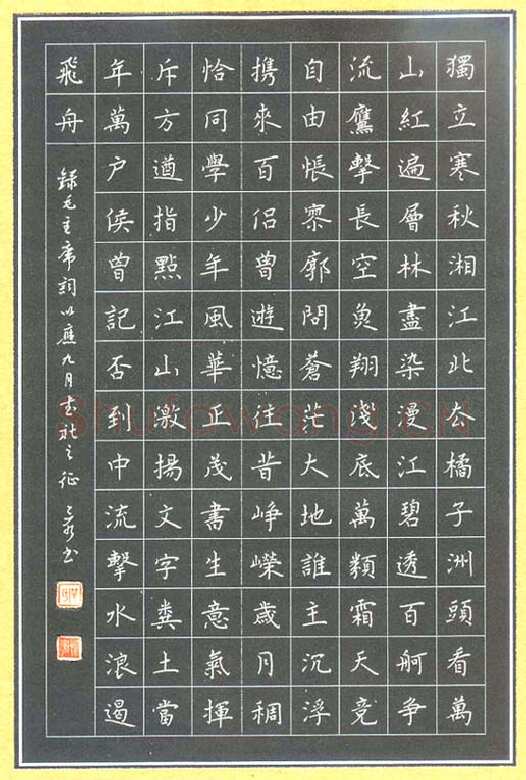 獨立寒秋湘江北去橘子洲頭看萬
山紅遍層林盡染漫江碧透百舸争
流鷹擊長空魚翔淺底萬類霜天竞
自由悵寥廓問蒼茫大地誰主沉浮
携來百侣曾遊憶往昔峥嶸歲月稠
恰同學少年風華正茂書生意氣揮
斥方遒指點江山激揚文字糞土當
年萬户侯曾記否到中流擊水浪遏
飛舟
録毛主席詞以應九月书社之征